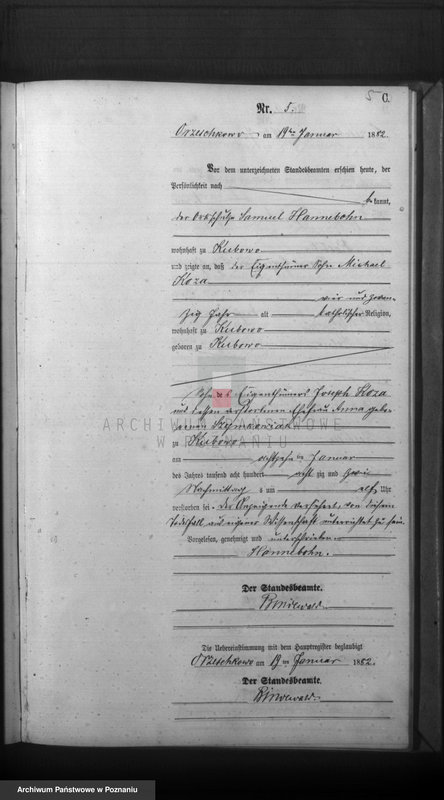 5 C.
Nr. 5.
Orzeschkowo am 19ten Januar 1882.
Vor dem unterzeichneten Standesbeamten erschien heute, der
Persönlichkeit nach
bekannt,
der Ortsschulze Samuel Hannebohn
wohnhaft zu Kubowo
und zeigte an, daß der Eigenthümer Sohn Michael
Koza
vier und zwan-
zig Jahr alt katholischer Religion,
wohnhaft zu Kubowo
geboren zu Kubowo
Sohn des Eigenthümers Joseph Koza
und dessen verstorbenen Ehefrau Anna gebo-
renen Szymkowiak
ARCHIWUM PAŃSTWOWE
W POZNANIU
zu Kubowo
am achtzehnten Januar
des Jahres tausend acht hundert achtzig und zwei
Nachmittags um elf Uhr
verstorben sei. Der Anzeigende versichert, von diesem
Todesfall aus eigener Wissenschaft unterrichtet zu sein.
Vorgelesen, genehmigt und unterschrieben
Hannebohn.
Der Standesbeamte.
Die Uebereinstimmung mit dem Hauptregister beglaubigt
Orzeschkowo am 19ten Januar 1882.
Der Standesbeamte.
Archiwum Państwowe w Poznaniu